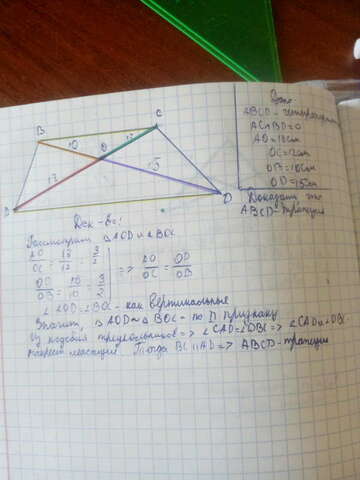 Дано:
ABCD - четырехуг.
AC∩BD=O
AO=18см
OC=12см
OB=10см
OD=15см
Доказать что
ABCD-трапеция
B
C
10
O
12
15
D
Док-во:
Рассмотрим ΔAOD и ΔBOC
AO/OC = 18/12 = 3/2
OD/OB = 15/10 = 3/2
=> AO/OC = OD/OB
∠AOD=∠BOC - как вертикальные
Значит, ΔAOD~ΔBOC - по II признаку
Из подобия треугольников => ∠CAD=∠OBC => ∠CAD и ∠OBC
накрест лежащие. Тогда BC||AD => ABCD-трапеция